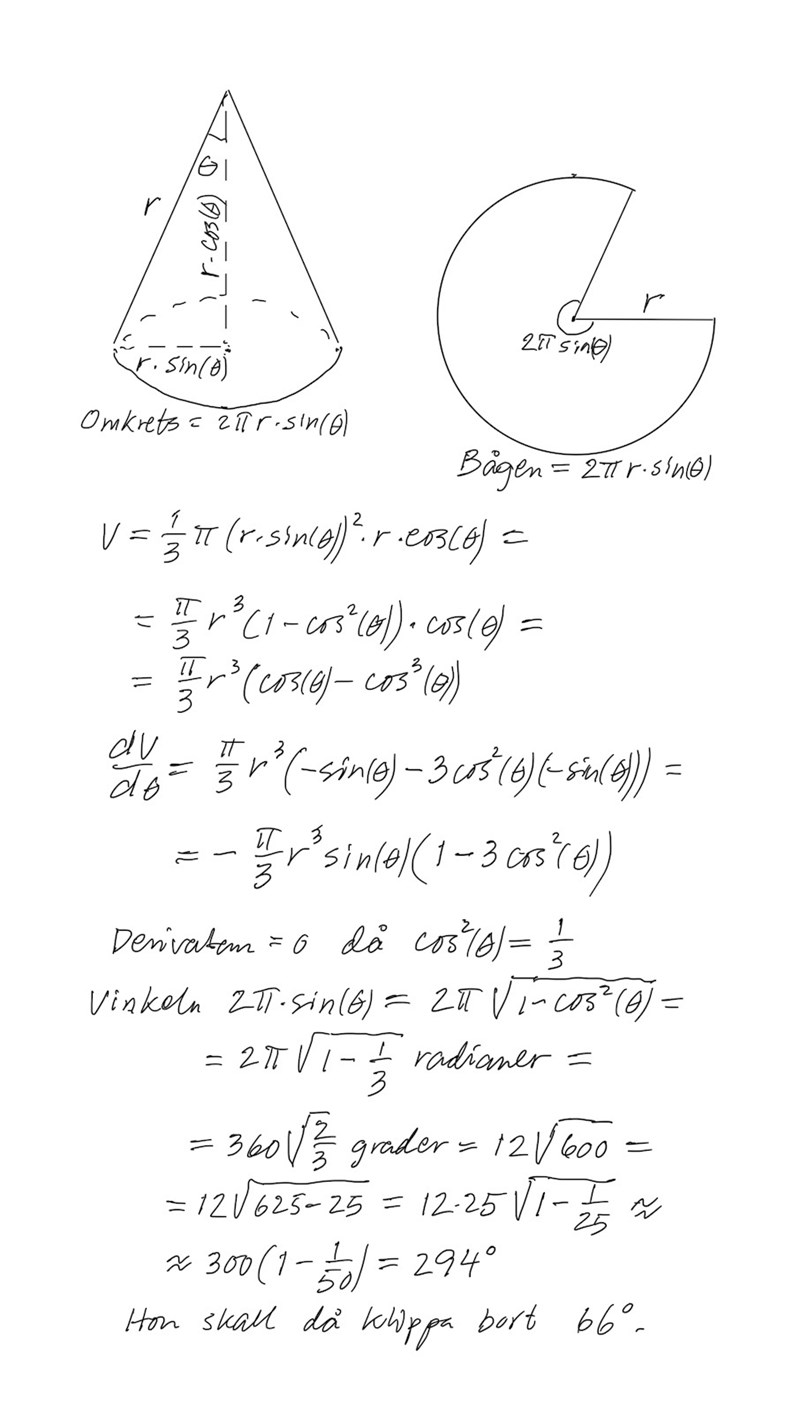 θ
r
r·cos(θ)
r·sin(θ)
Omkrets = 2πr·sin(θ)
r
2π sin(θ)
Bågen = 2πr·sin(θ)
V = 1/3 π (r·sin(θ))²·r·cos(θ) =
= π/3 r³(1-cos²(θ))·cos(θ) =
= π/3 r³(cos(θ) - cos³(θ))
dV/dθ = π/3 r³(-sin(θ) - 3cos²(θ)(-sin(θ))) =
= - π/3 r³ sin(θ)(1 - 3cos²(θ))
Derivatan = 0 då cos²(θ) = 1/3
Vinkeln 2π·sin(θ) = 2π√(1-cos²(θ)) =
= 2π√(1 - 1/3) radianer =
= 360√(2/3) grader = 12√600 =
= 12√(625-25) = 12·25√(1 - 1/25) ≈
≈ 300(1 - 1/50) = 294°
Hon skall då klippa bort 66°.